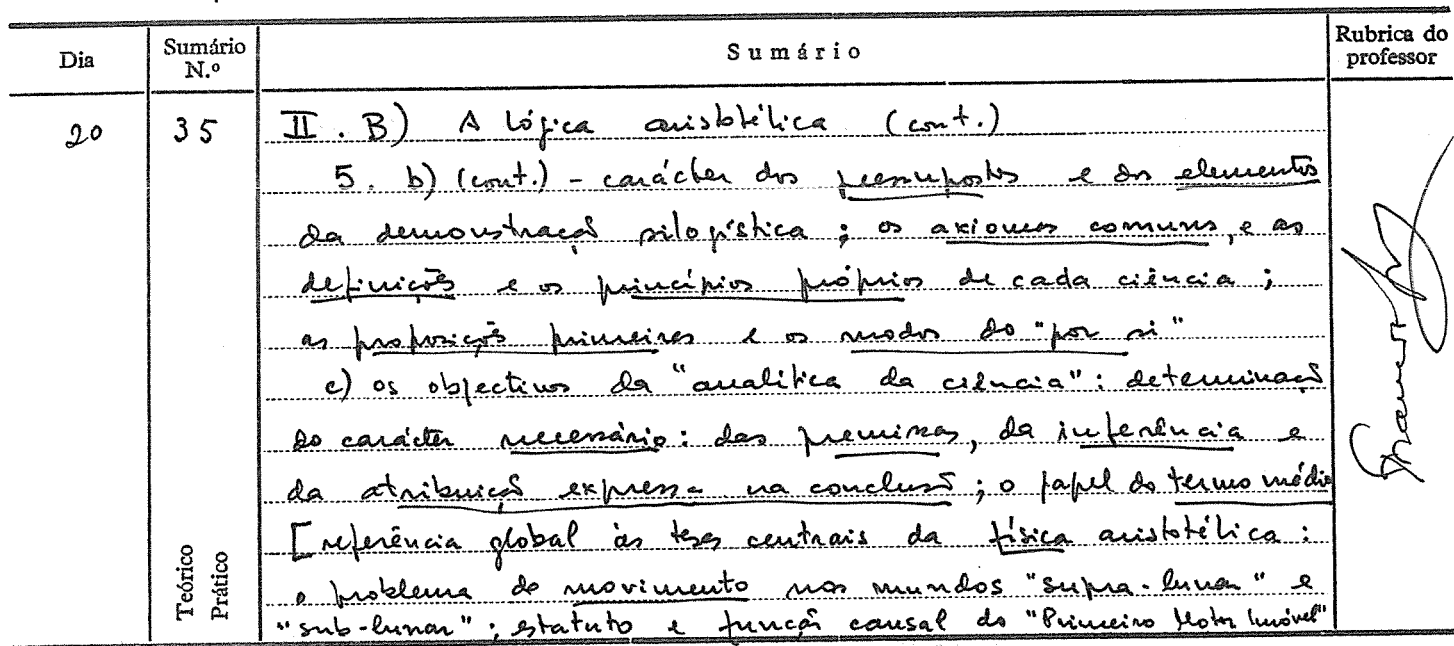 Dia
Sumário N.º
Sumário
Rubrica do professor
20
35
II. B) A lógica aristotélica (cont.)
5. b) (cont.) - carácter dos pressupostos e dos elementos
da demonstração silogística; os axiomas comuns, e as
definições e os princípios próprios de cada ciência;
as proposições primeiras e os modos do "por si"
c) os objectivos da "analítica da ciência": determinação
do carácter necessário: das premissas, da inferência e
da atribuição expressa na conclusão; o papel do termo médio
[referência global às teses centrais da física aristotélica:
o problema do movimento nos mundos "supra-lunar" e
"sub-lunar"; estatuto e função causal do "Primeiro Motor Imóvel"
Teórico
Prático